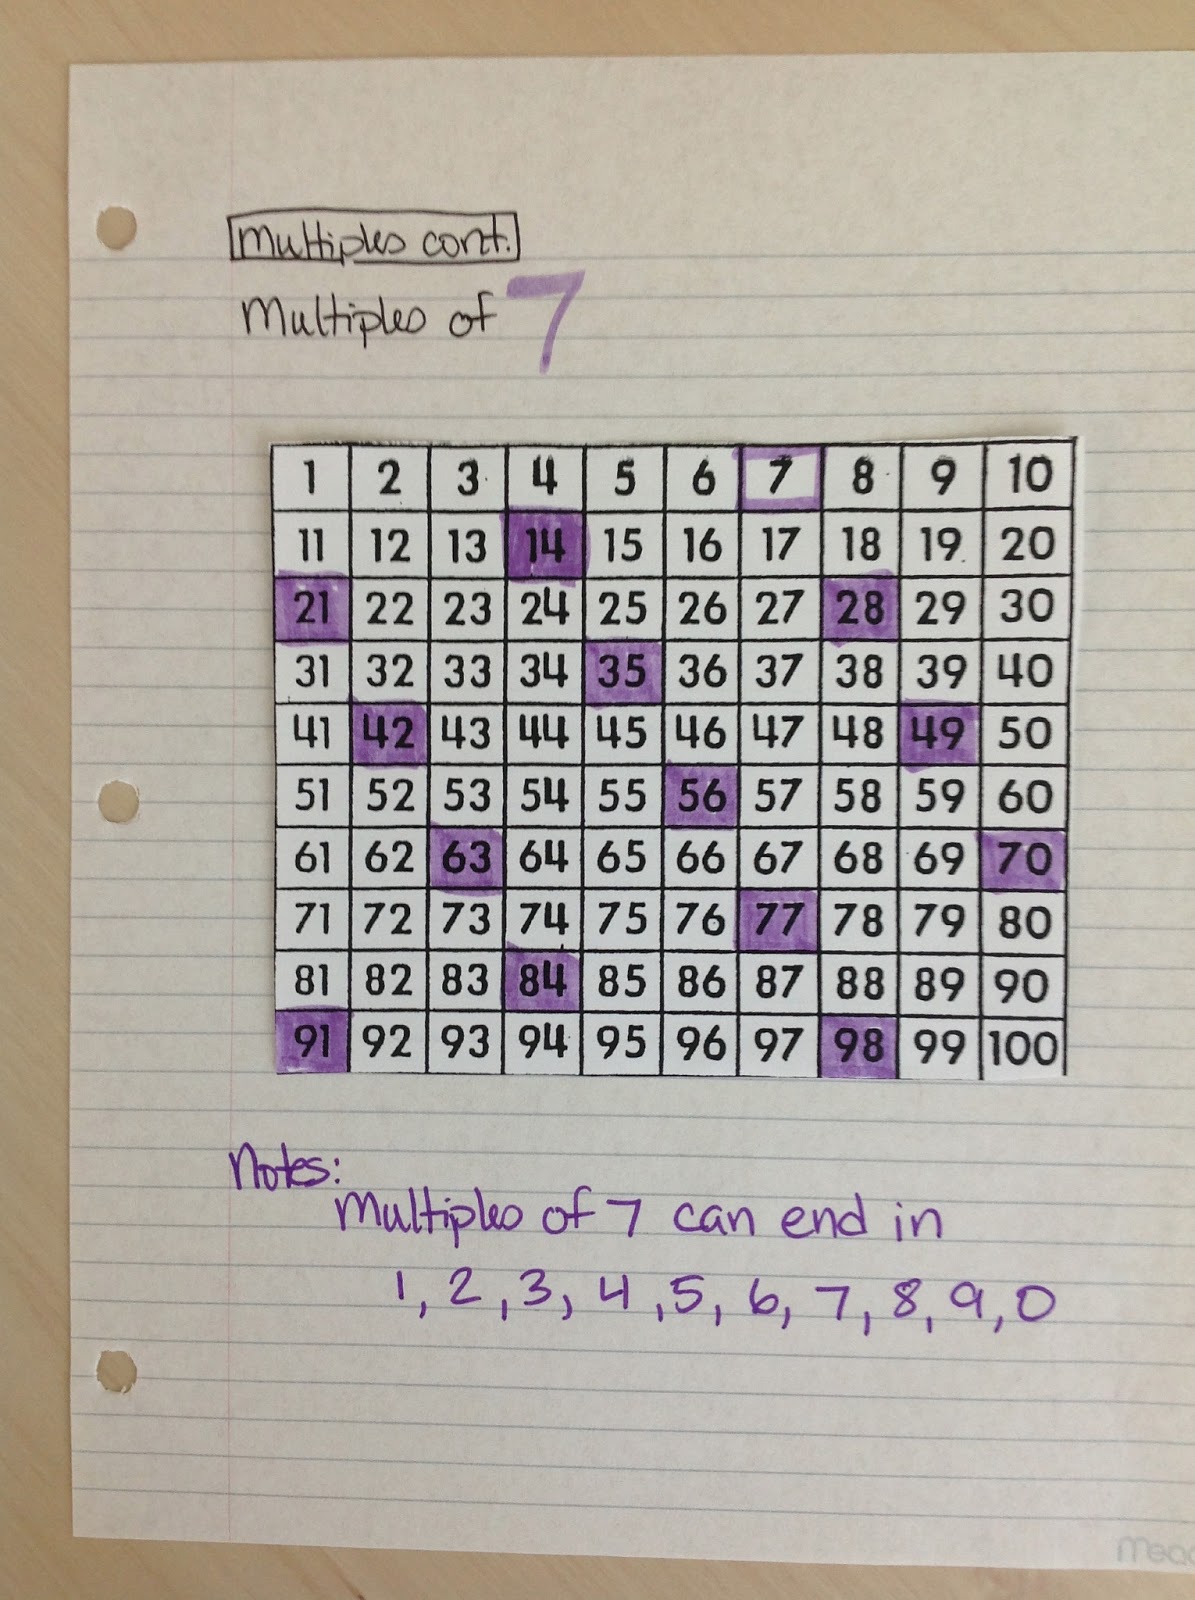 Multiples cont.
Multiples of 7
1 2 3 4 5 6 7 8 9 10
11 12 13 14 15 16 17 18 19 20
21 22 23 24 25 26 27 28 29 30
31 32 33 34 35 36 37 38 39 40
41 42 43 44 45 46 47 48 49 50
51 52 53 54 55 56 57 58 59 60
61 62 63 64 65 66 67 68 69 70
71 72 73 74 75 76 77 78 79 80
81 82 83 84 85 86 87 88 89 90
91 92 93 94 95 96 97 98 99 100
Notes:
Multiples of 7 can end in
1, 2, 3, 4, 5, 6, 7, 8, 9, 0